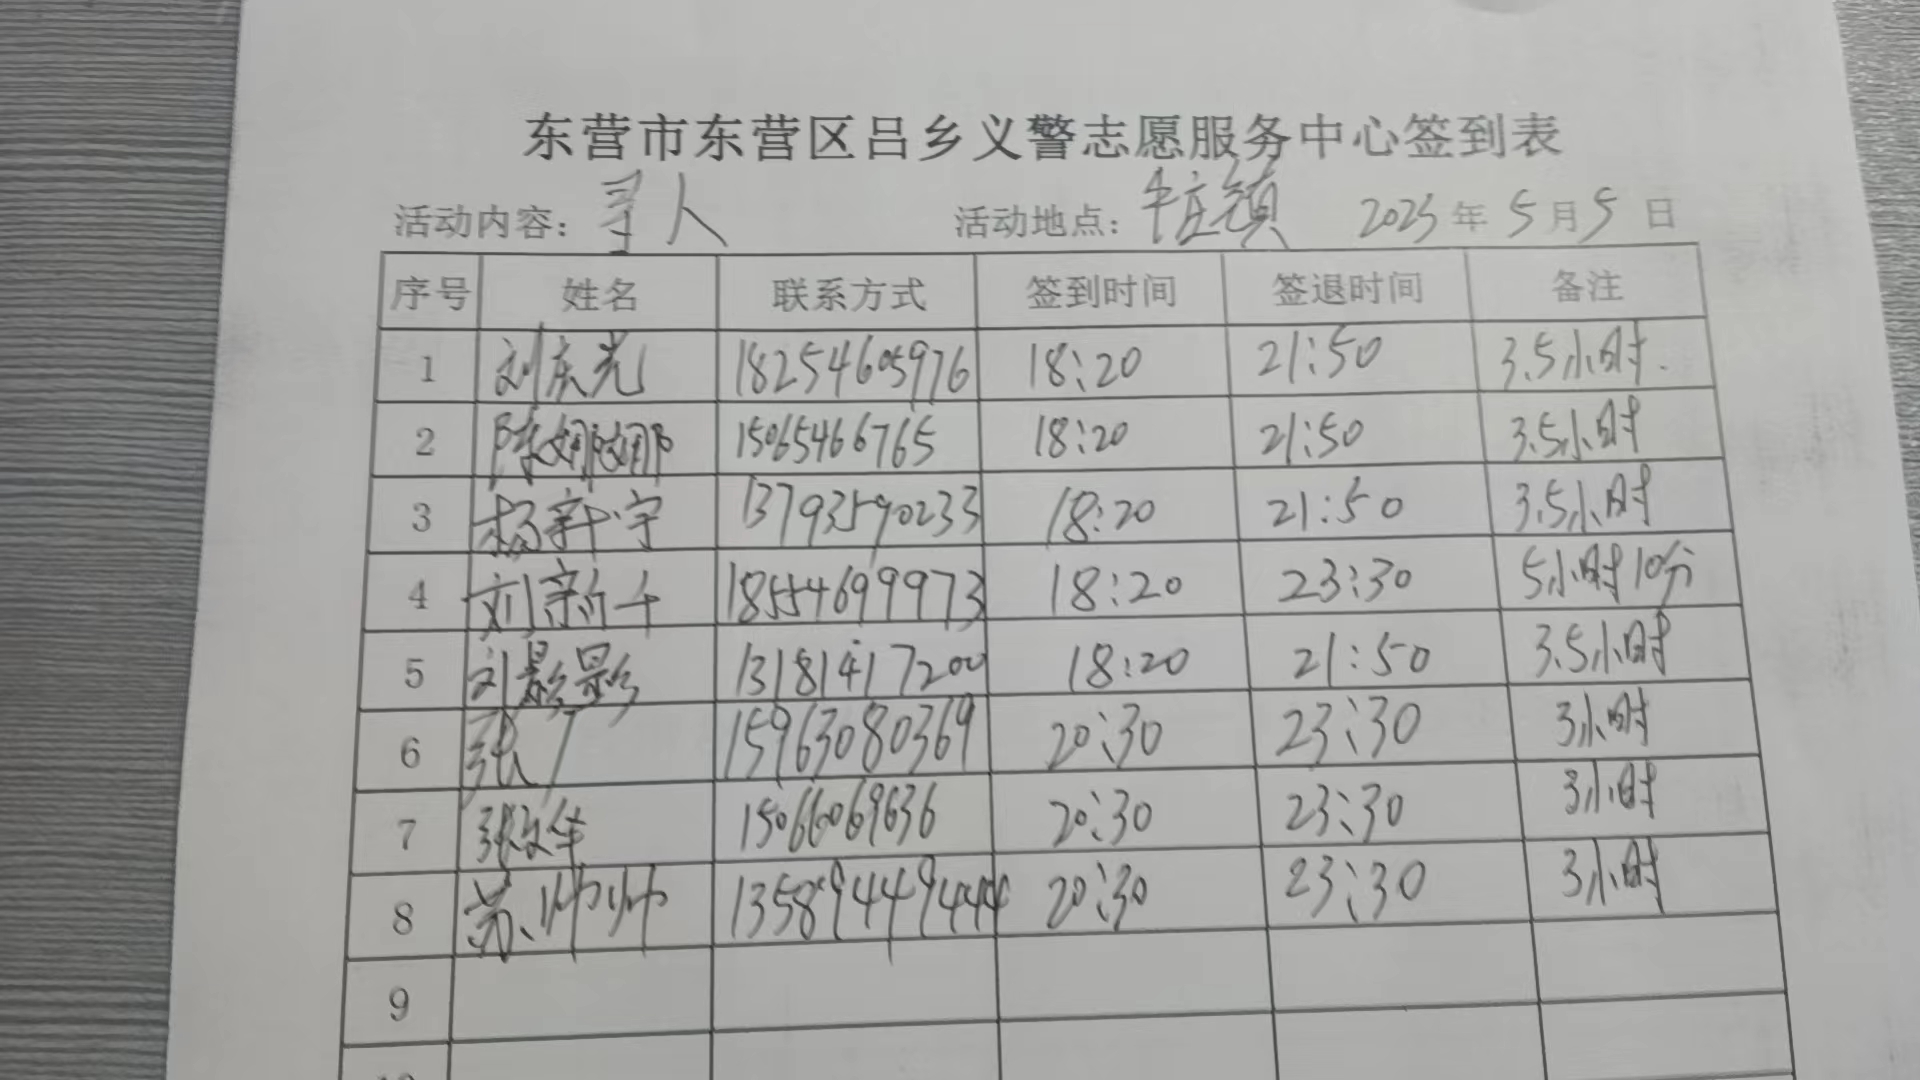 东营市东营区吕乡义警志愿服务中心签到表
活动内容：寻人 活动地点：牛庄镇 2025年5月5日
序号 姓名 联系方式 签到时间 签退时间 备注
1 刘东光 18254605976 18:20 21:50 3.5小时.
2 陈娜娜 15065466765 18:20 21:50 3.5小时
3 杨新宇 13793590233 18:20 21:50 3.5小时
4 刘新千 18554699973 18:20 23:30 5小时10分
5 刘影影 13181417200 18:20 21:50 3.5小时
6 张广 15963080369 20:30 23:30 3小时
7 张文华 15066069636 20:30 23:30 3小时
8 苏帅帅 20:30 23:30 3小时
9